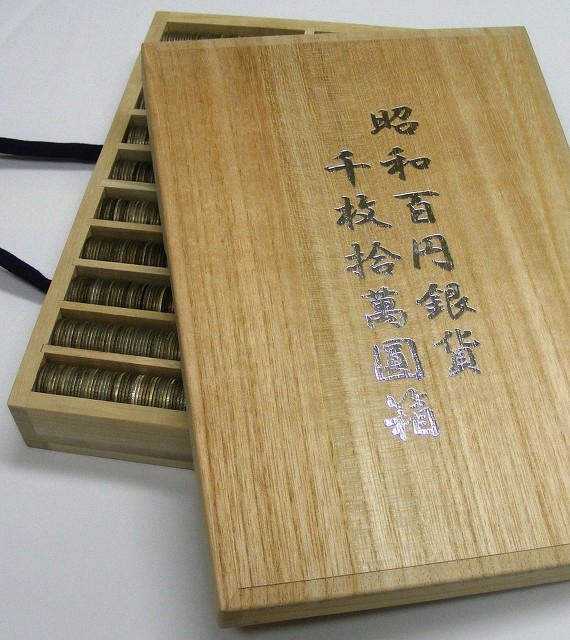 昭和百円銀貨
千枚拾萬圓箱